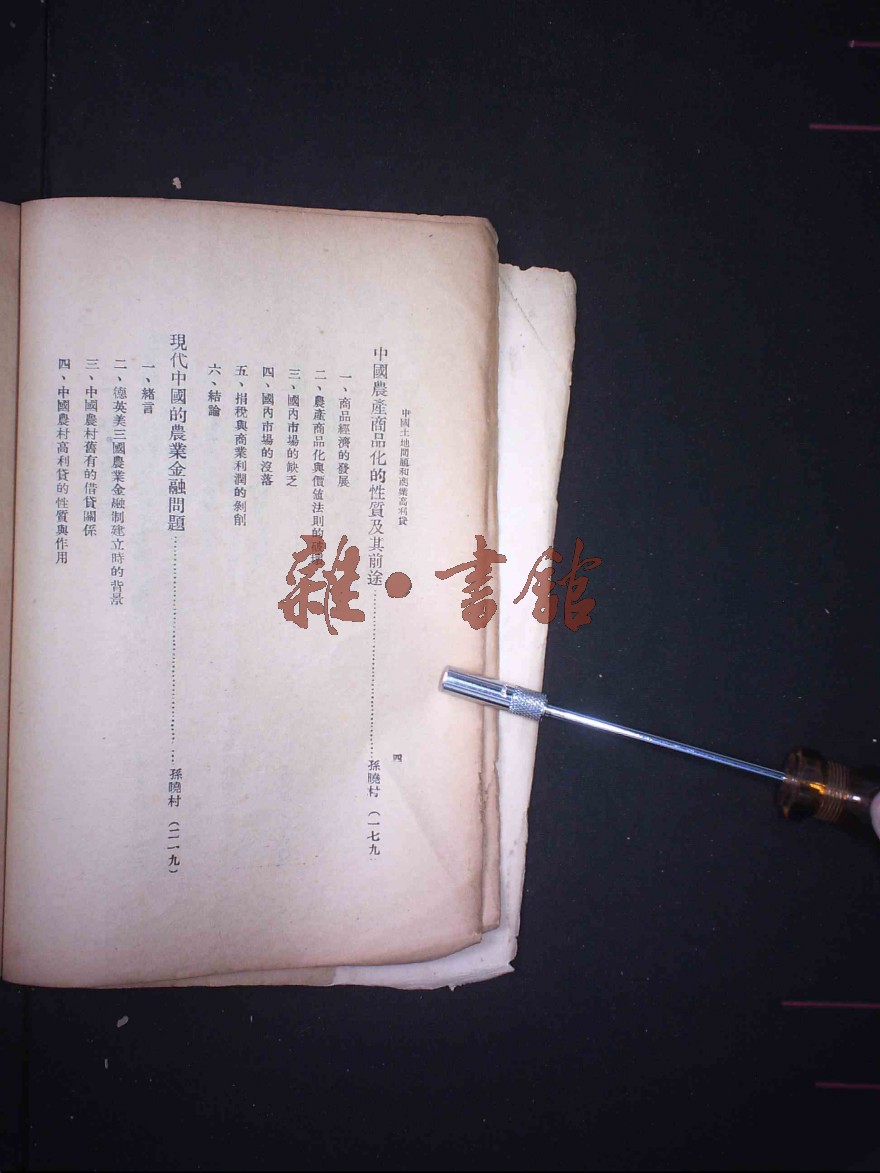 中國土地問題和商業高利貸
四
中國農產商品化的性質及其前途…………孫曉村（一七九
一、商品經濟的發展
二、農產商品化與價值法則的破壞
三、國內市場的缺乏
四、國內市場的沒落
五、捐稅與商業利潤的剝削
六、結論
現代中國的農業金融問題…………孫曉村（二一九）
一、緒言
二、德英美三國農業金融制建立時的背景
三、中國農村舊有的借貸關係
四、中國農村高利貸的性質與作用
雜·書館